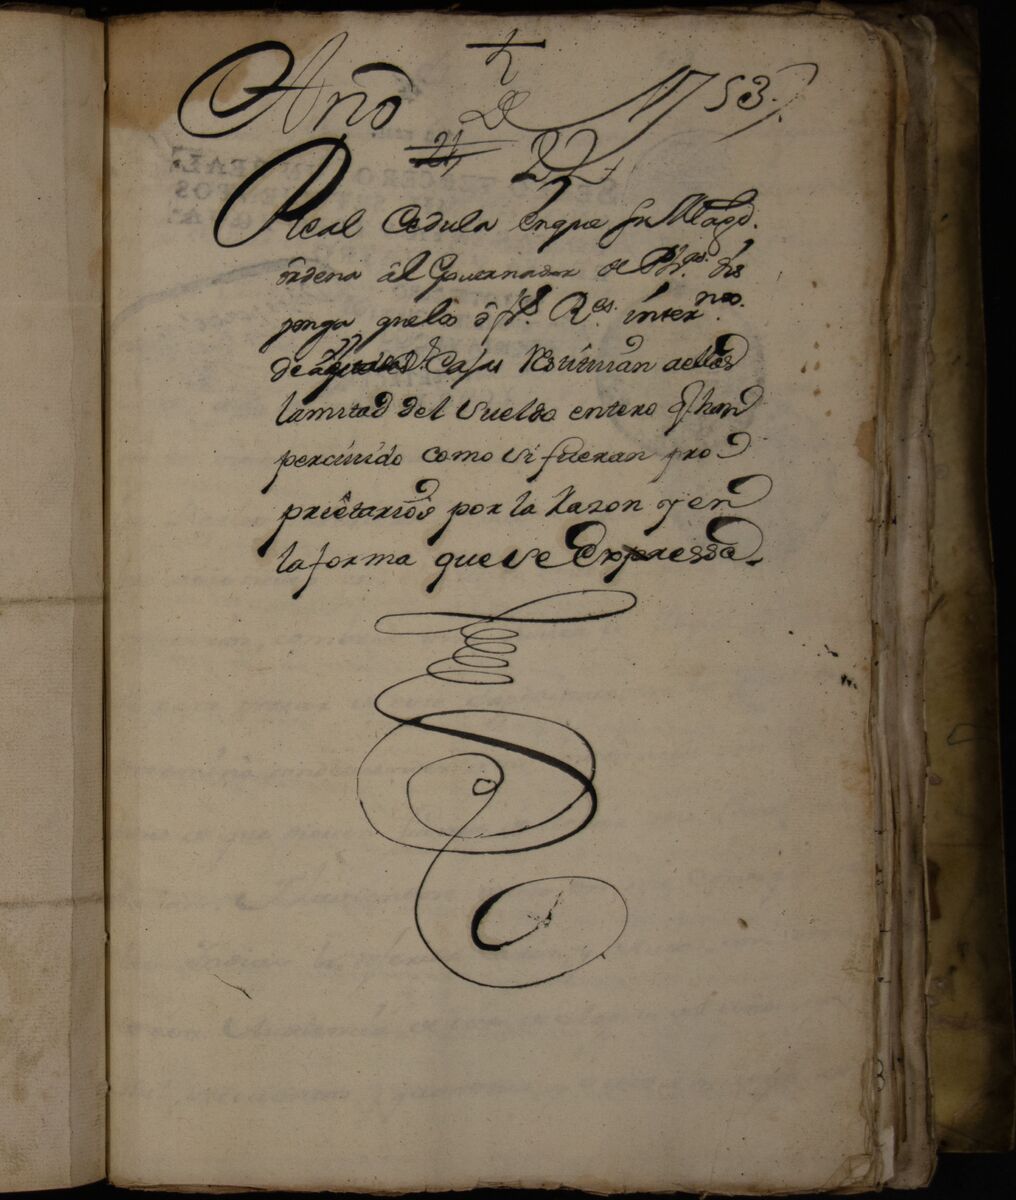 Año de 1753.
21 22
Real Cedula enque su Magd.
ordena âl Governador de Phas. dis
ponga quelos ofs. Rs. interinos.
de Cajas Restituian aellas
lamitad del sueldo entero q. han
percivido como si fueran pro
prietarios por la razon y en
la forma que se expressa.